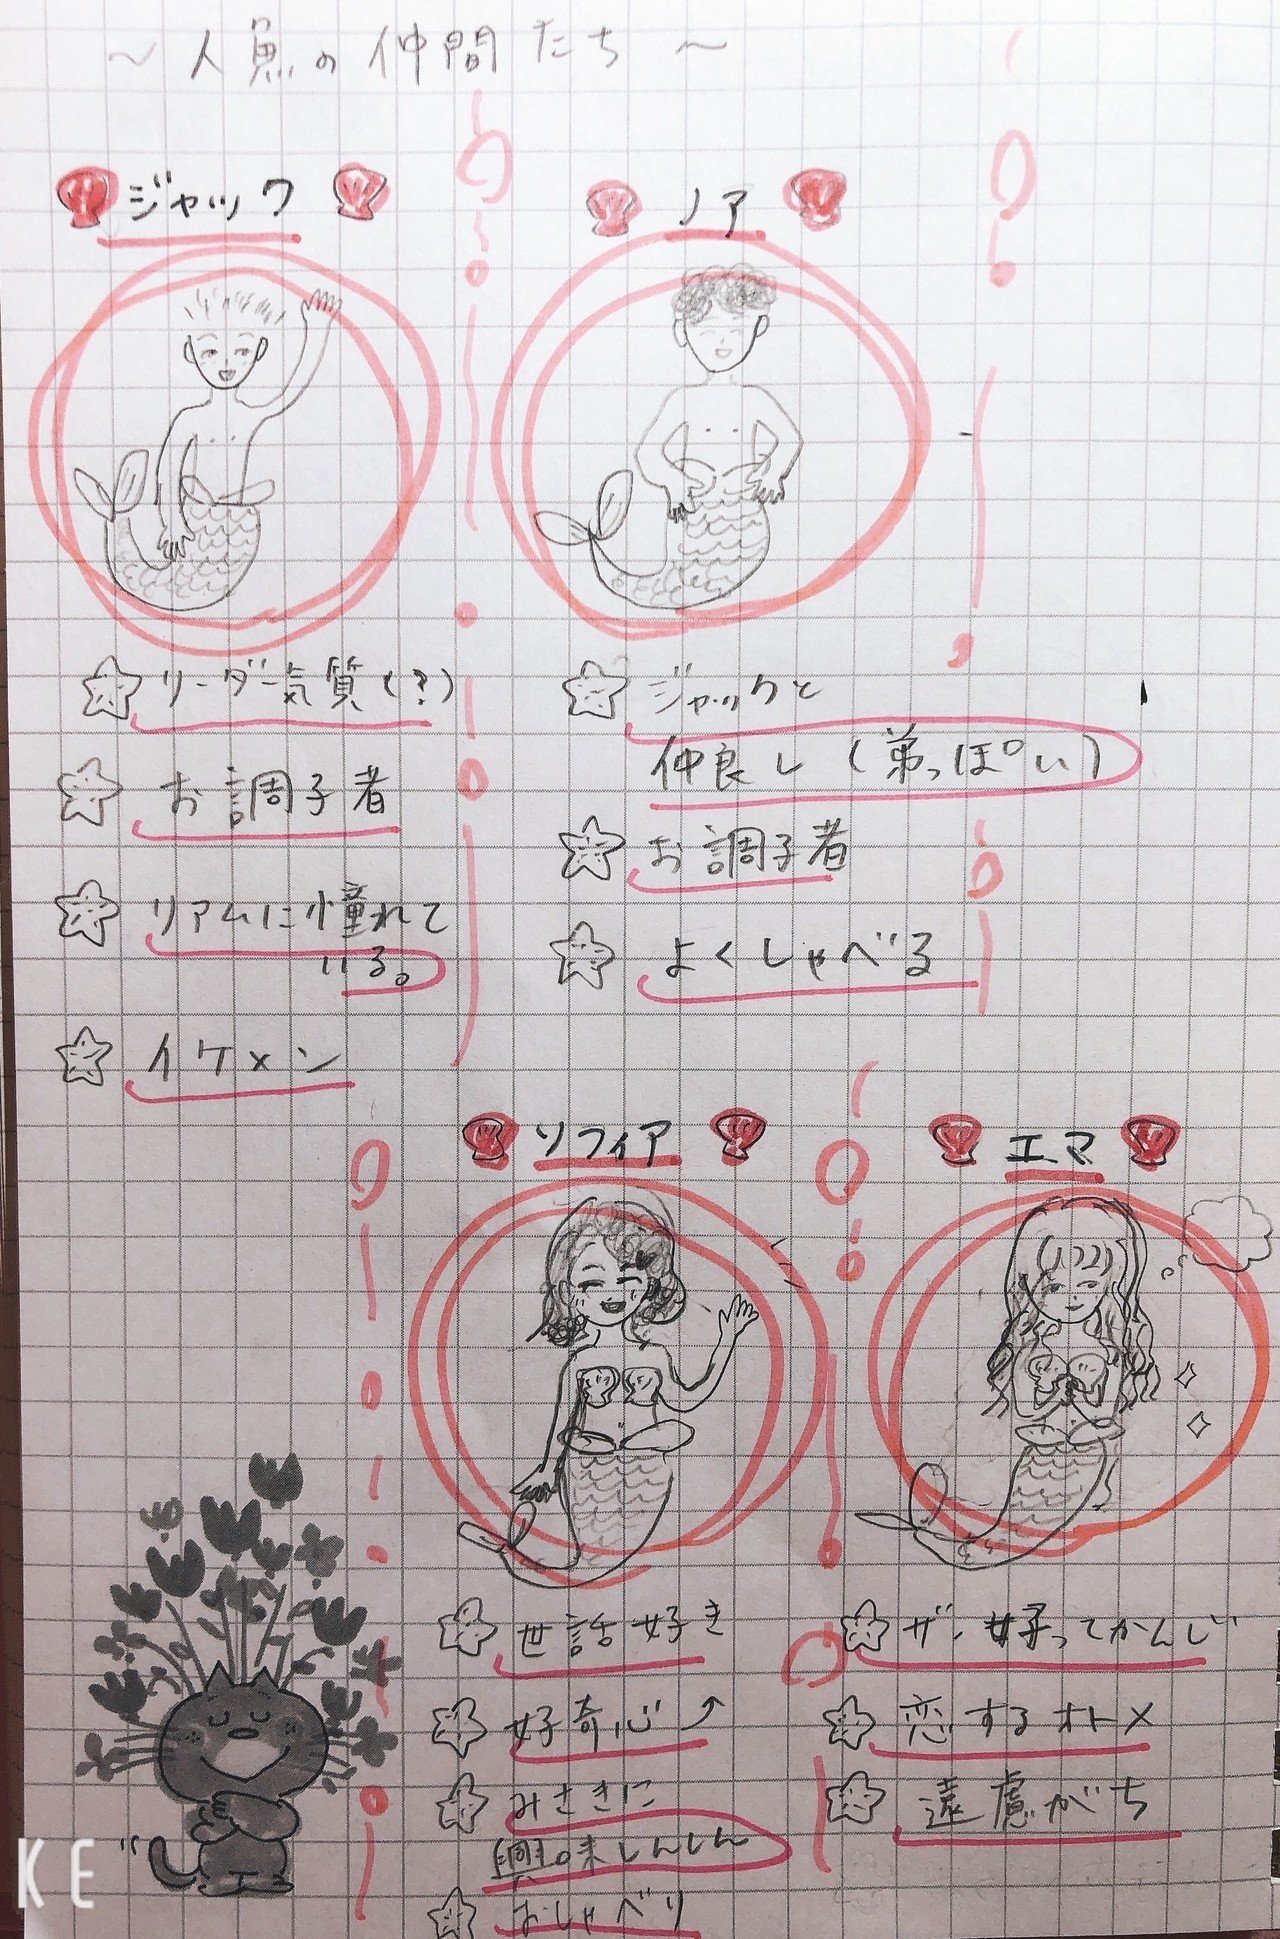 ～人魚の仲間たち～
ジャック
リーダー気質(?)
お調子者
リアムに憧れて
いる。
イケメン
ノア
ジャックと
仲良し(弟っぽい)
お調子者
よくしゃべる
ソフィア
世話好き
好奇心↗
みさきに
興味しんしん
おしゃべり
エマ
ザ・女子ってかんじ
恋するオトメ
遠慮がち
KE